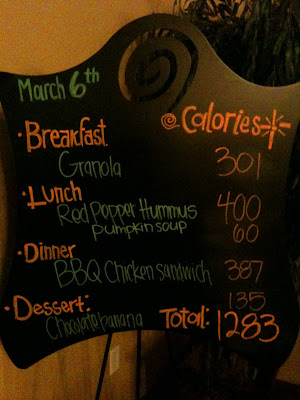 March 6th
Calories
• Breakfast
Granola 301
• Lunch
Red Pepper Hummus 400
pumpkin soup 60
• Dinner
BBQ Chicken Sandwich 387
• Dessert: 135
Chocolate banana Total: 1283